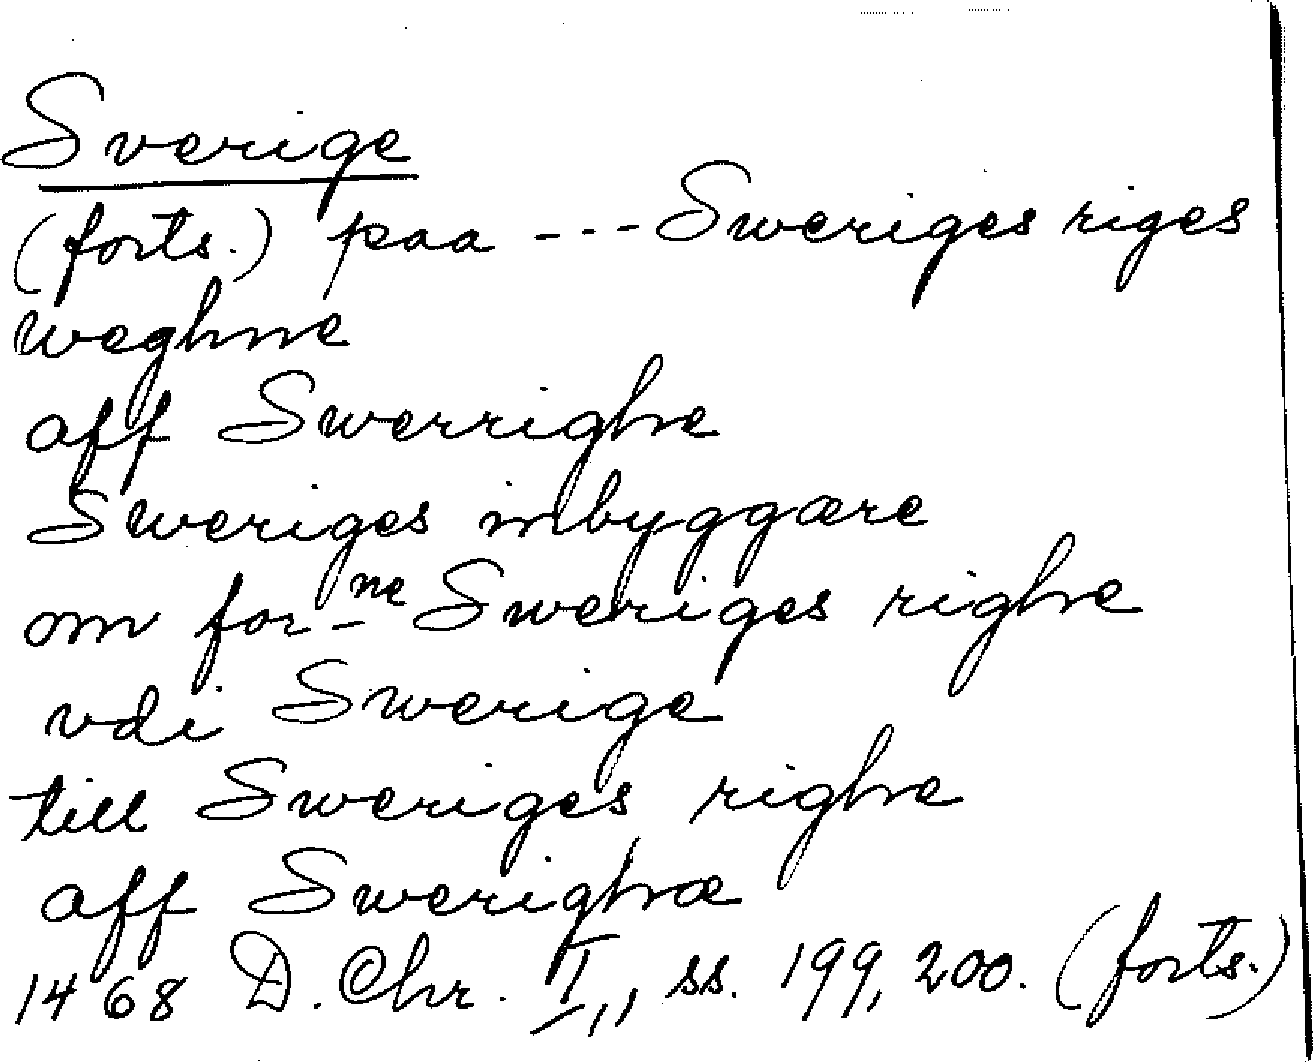 Sverige
(forts.) paa --- Sweriges riges
weghne
aff Swerrighe
Sweriges inbyggære
om for ne Sweriges righe
vdi Swerige
till Sweriges righe
aff Swerighæ
1468 D. Chr. I,, ss. 199, 200. (forts.)